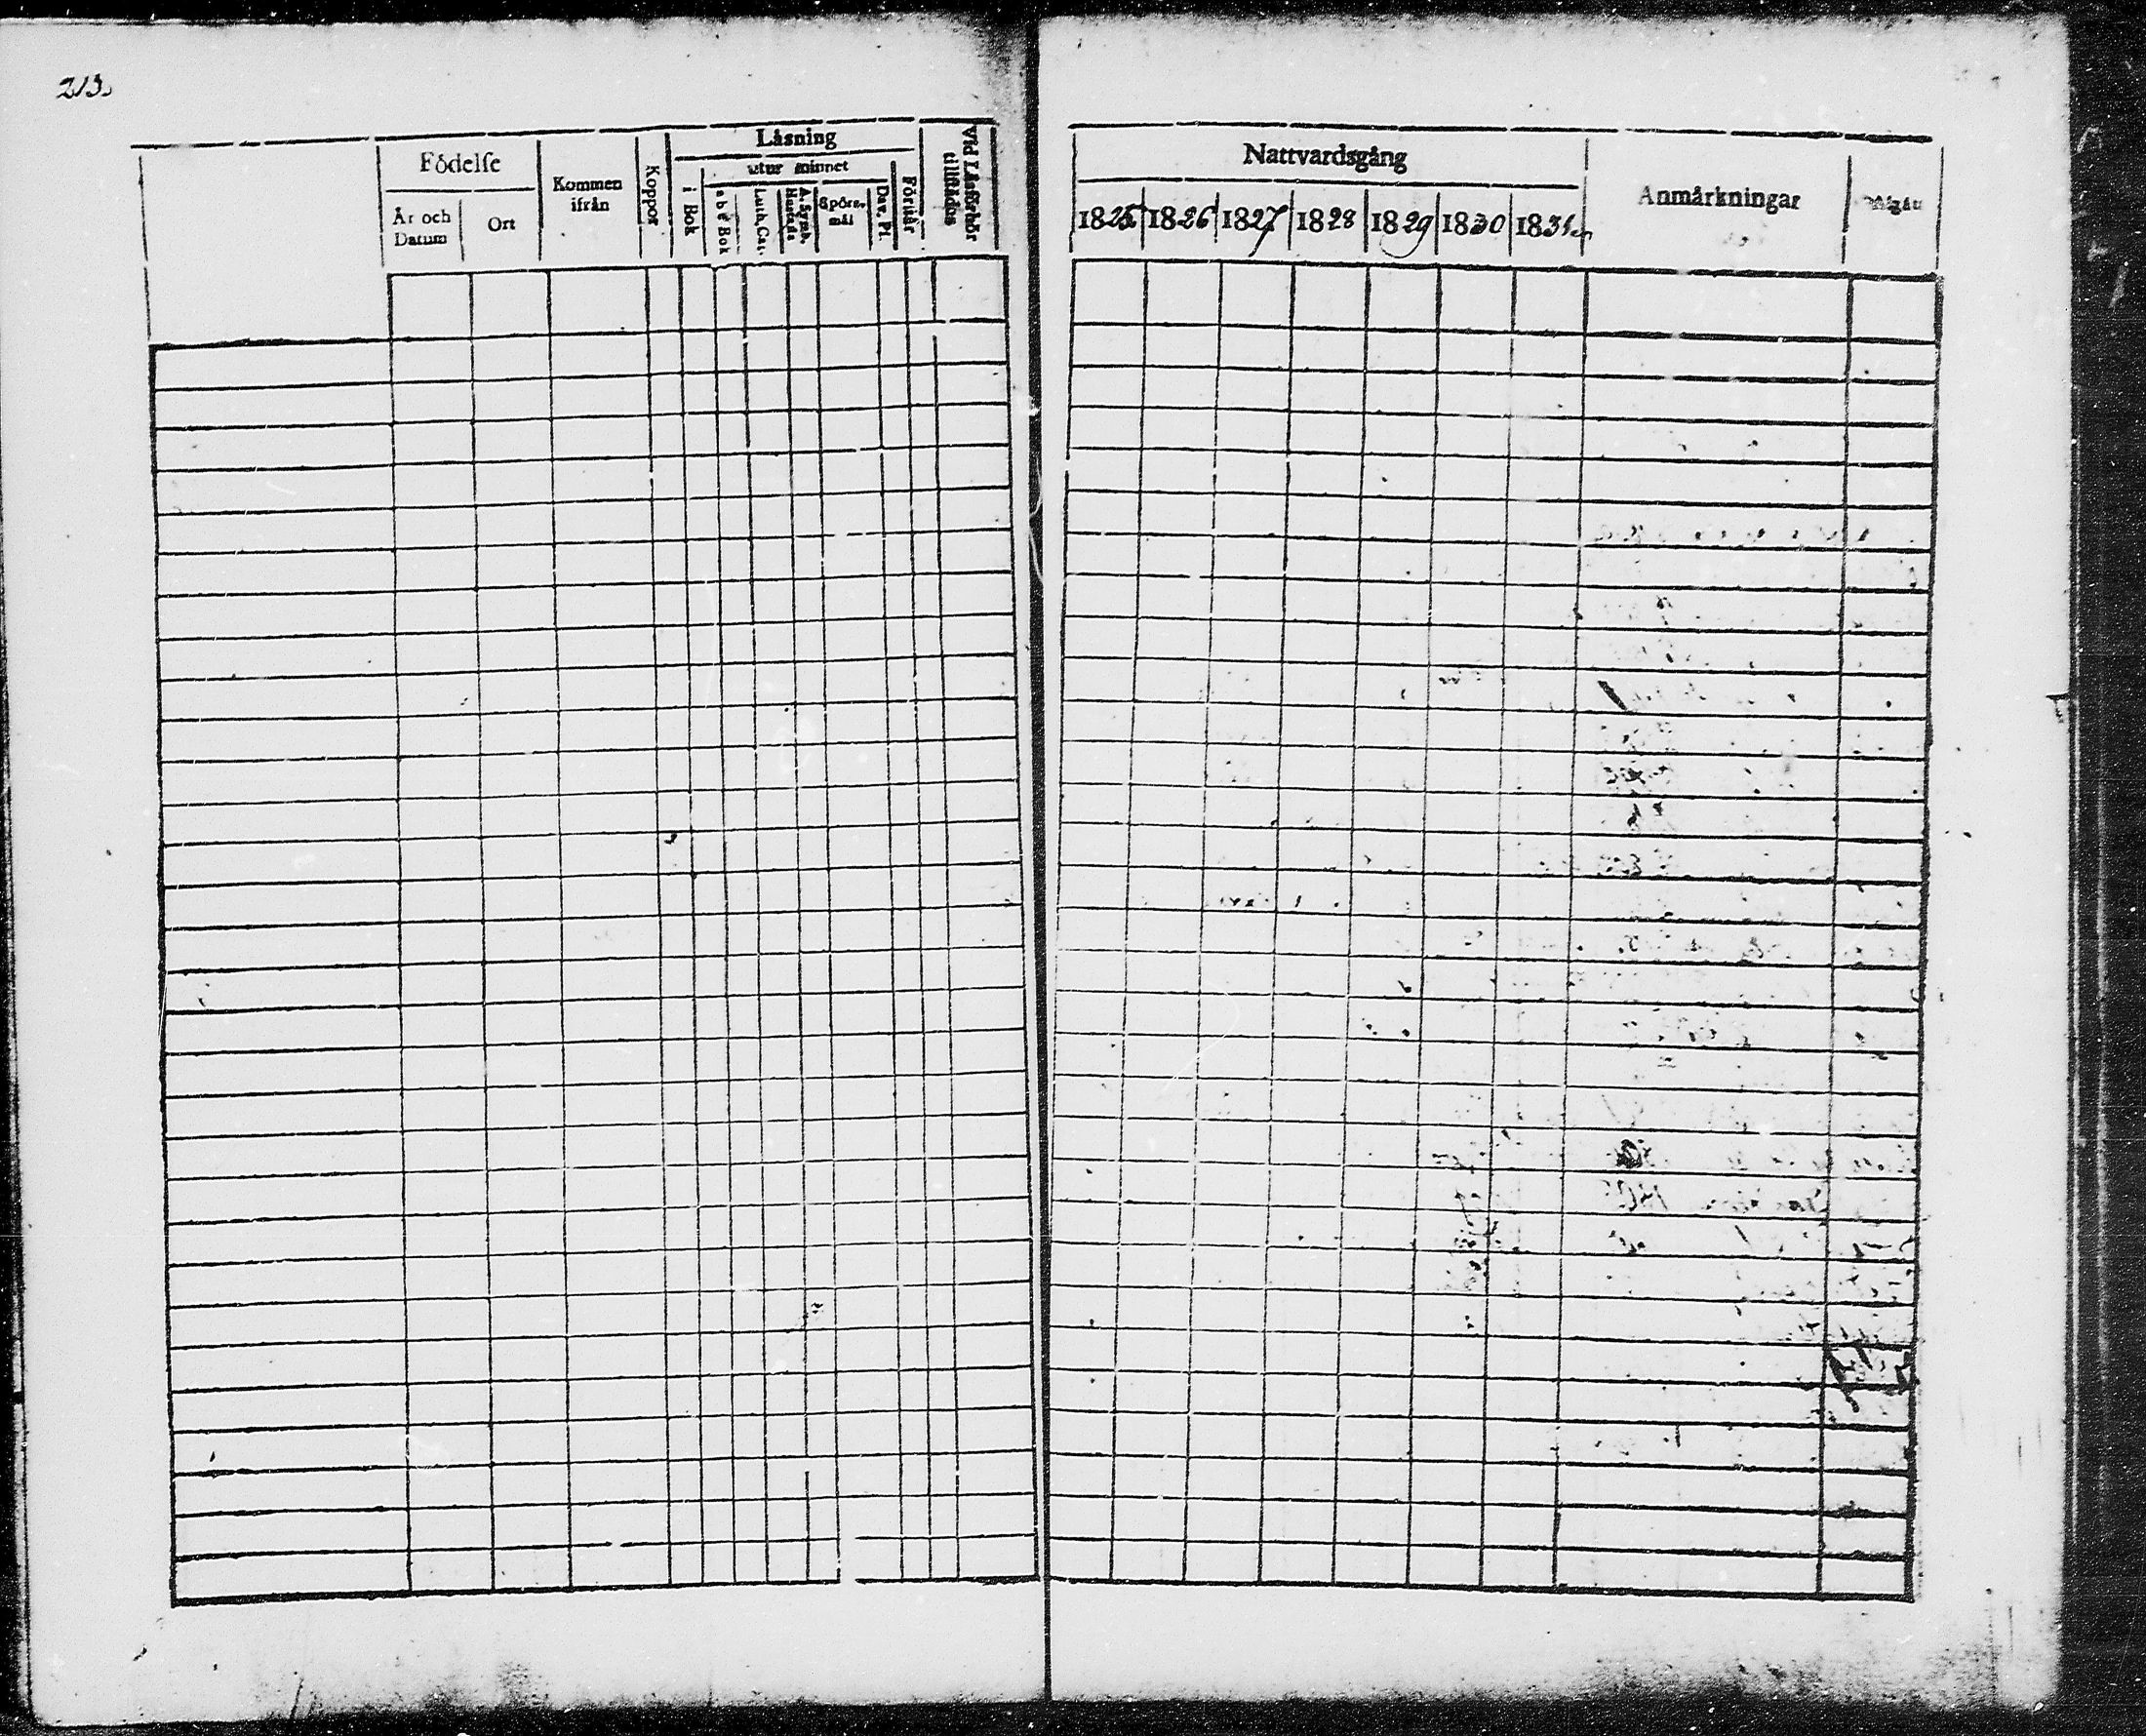 213.
Låsning
Fôdelse
utur minnet
Kommen
ifrån
Koppor
i Bok
a b c Bok
Luth. Cat.
A. Symb.
Hustafla
Spörs-
mål
Dav. Pf.
Förstår
Vid Läsförhör
tillstädes
År och
Datum
Ort
Nattvardsgång
Anmårkningar
1825 1826 1827 1828 1829 1830 1831